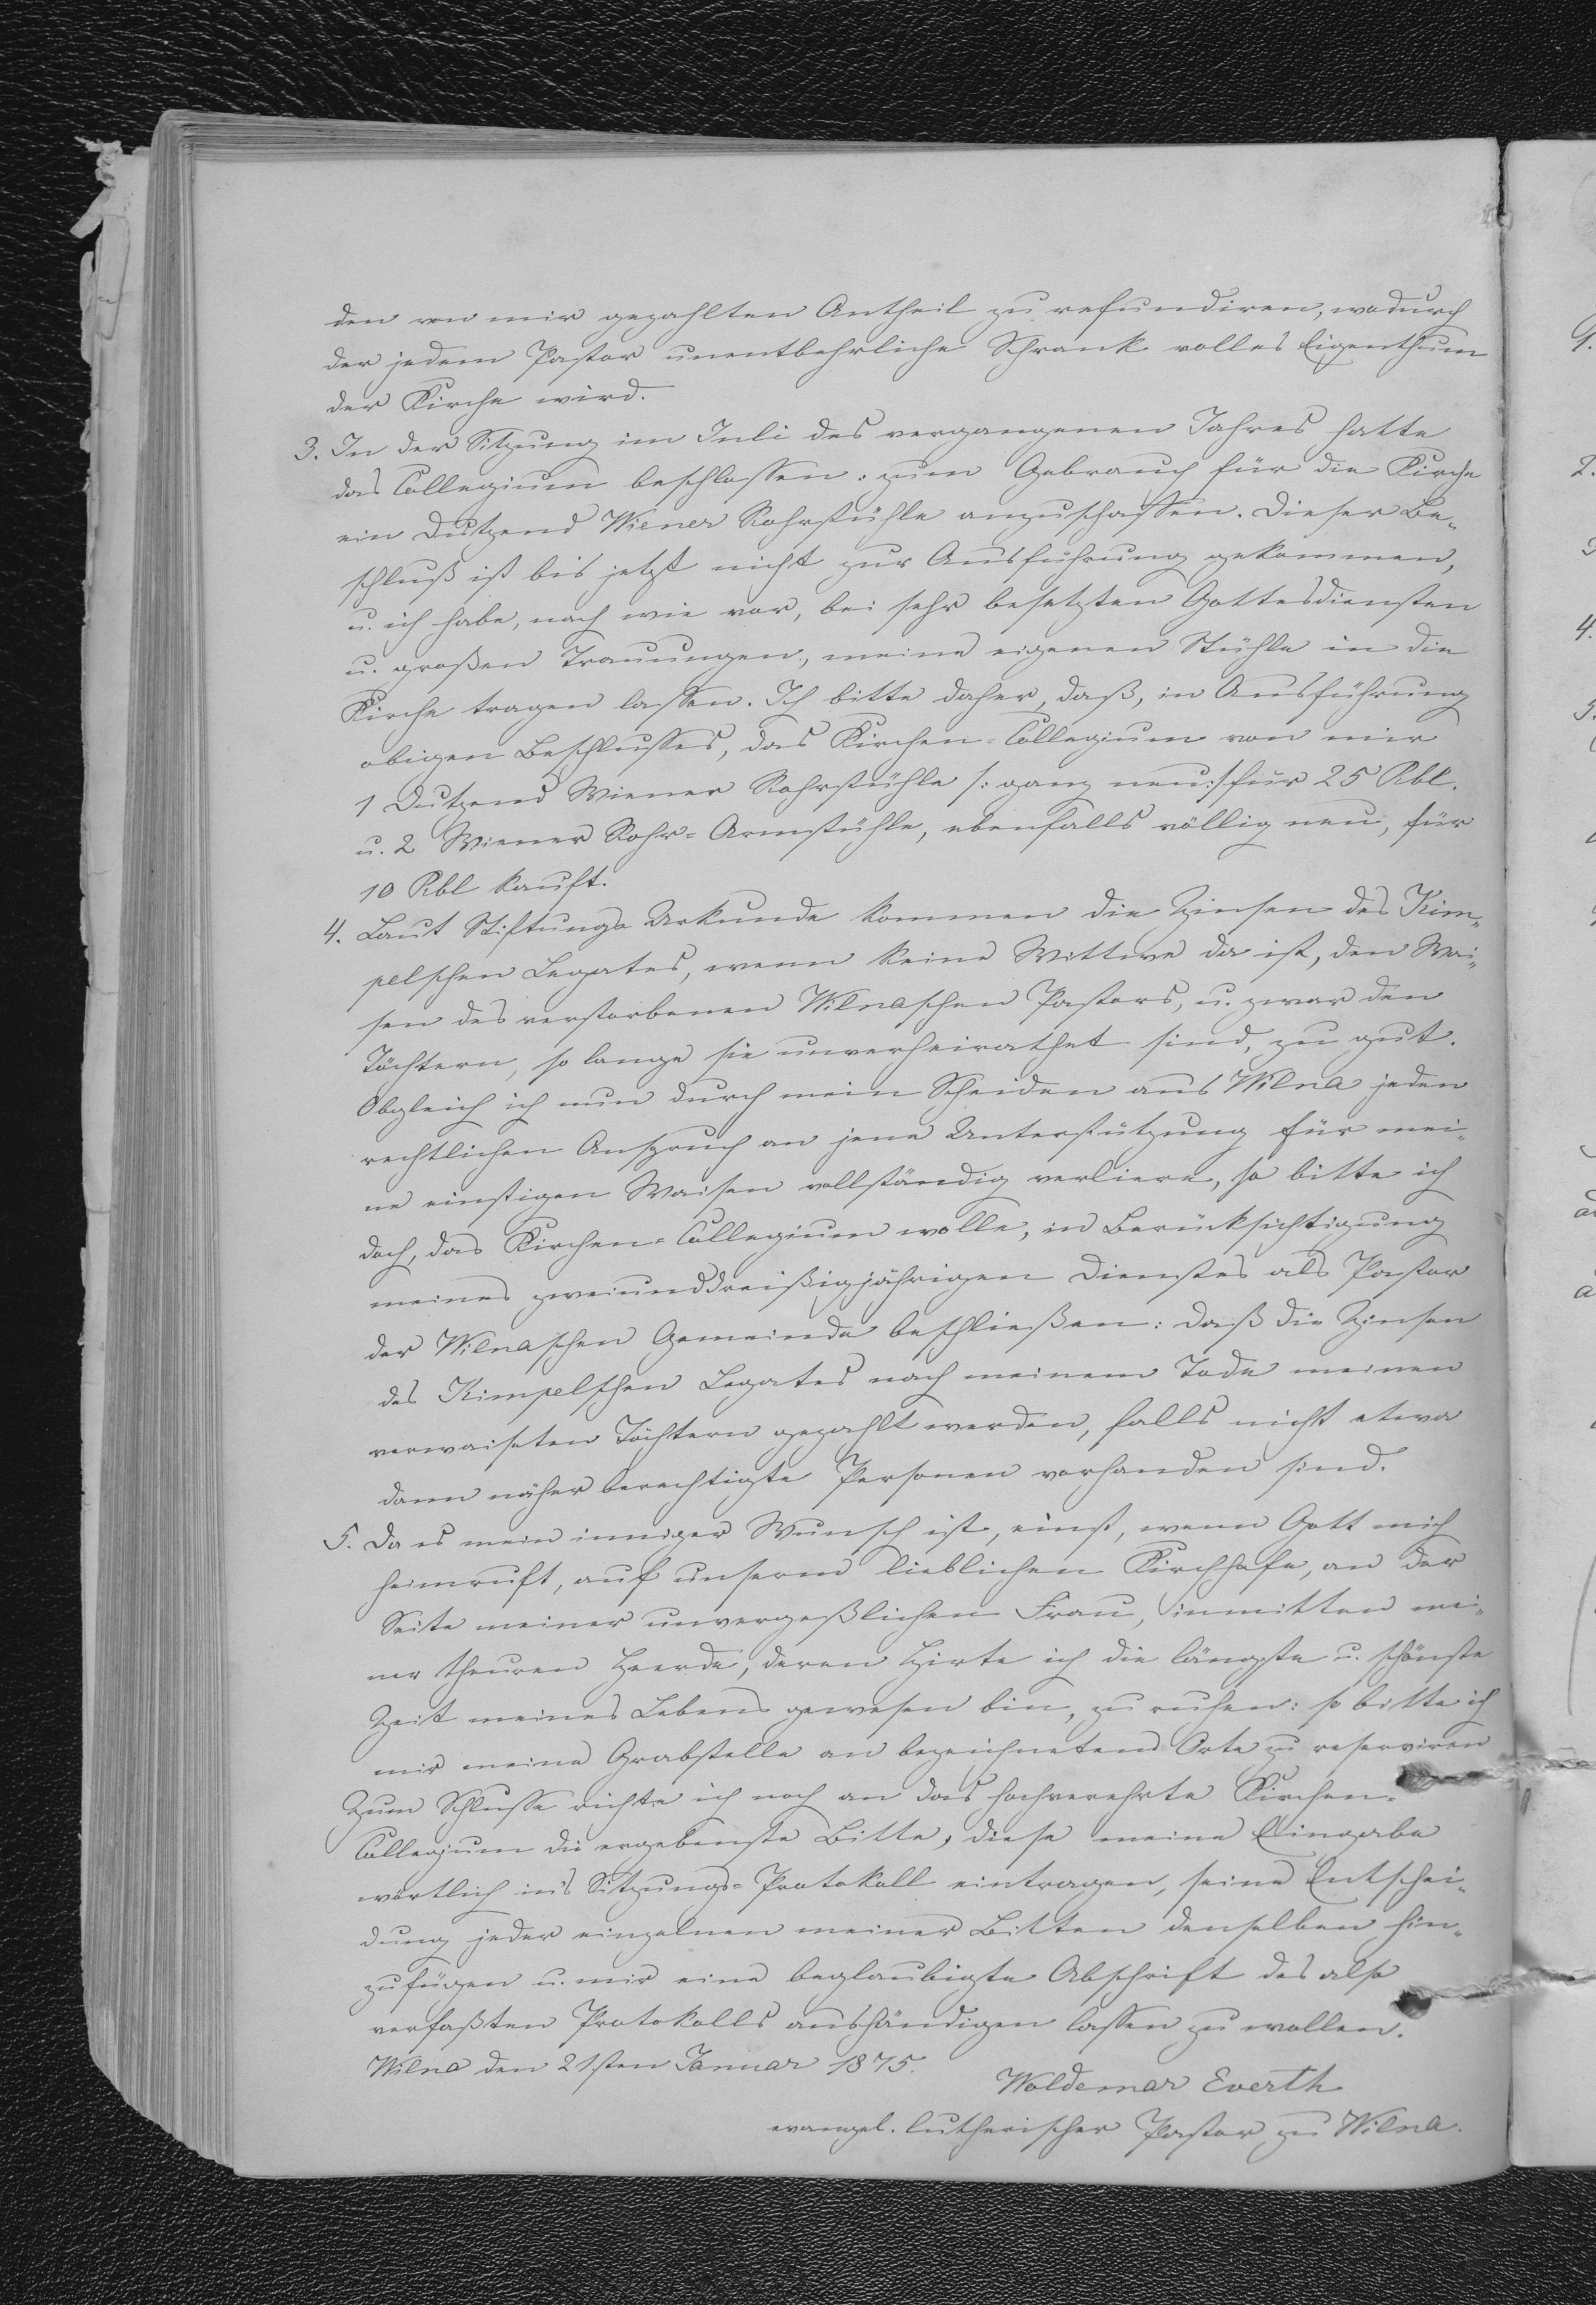 den von mir gezahlten Antheil zu refundiren, wodurch
der jedem Pastor unentbehrliche Schrank volles Eigenthum
der Kirche wird.
3. In der Sitzung im Juli des vergangenen Jahres hatte
das Collegium beschlossen: zum Gebrauch für die Kirche
ein Dutzend Wiener Rohrstühle anzuschaffen. Dieser Be-
schluß ist bis jetzt nicht zur Ausführung gekommen,
u. ich habe, nach wie vor, bei sehr besetzten Gottesdiensten
u. großen Trauungen, meine eigenen Stühle in die
Kirche tragen lassen. Ich bitte daher, daß, in Ausführung
obigen Beschlusses, das Kirchen-Collegium von mir
1 Dutzend Wiener Rohrstühle /: ganz neu :/ für 25 Rbl.
u. 2 Wiener Rohr-Armstühle, ebenfalls völlig neu, für
10 Rbl kauft.
4. Laut Stiftungs Urkunde kommen die Zinsen des Kim-
pelschen Legates, wenn keine Wittwe da ist, den Wai-
sen des verstorbenen Wilnaschen Pastors, u. zwar den
Töchtern, so lange sie unverheirathet sind, zu gut.
Obgleich ich nun durch mein Scheiden aus Wilna jeden
rechtlichen Anspruch an jene Unterstützung für mei-
ne einstigen Waisen vollständig verliere, so bitte ich
doch, das Kirchen-Collegium wolle, in Berücksichtigung
meines zweiunddreißigjährigen Dienstes als Pastor
der Wilnaschen Gemeinde beschließen: daß die Zinsen
des Kimpelschen Legates nach meinem Tode meinen
verwaisten Töchtern gezahlt werden, falls nicht etwa
dann näher berechtigte Personen vorhanden sind.
5. Da es mein inniger Wunsch ist, einst, wenn Gott mich
heimruft, auf unserm lieblichen Kirchhofe, an der
Seite meiner unvergeßlichen Frau, inmitten mei-
ner theuren Heerde, deren Hirte ich die längste u. schönste
Zeit meines Lebens gewesen bin, zu ruhen: so bitte ich
mir meine Grabstelle an bezeichnetem Orte zu reserviren
Zum Schlusse richte ich noch an das hochverehrte Kirchen-
Collegium die ergebenste Bitte, diese meine Eingabe
wörtlich in's Sitzungs-Protokoll eintragen, seine Entschei-
dung jeder einzelnen meiner Bitten denselben hin-
zufügen u. mir eine beglaubigte Abschrift des also
verfaßten Protokolls aushändigen lassen zu wollen.
Wilna den 21sten Januar 1875.
Woldemar Everth
evangel. lutherischer Pastor zu Wilna.